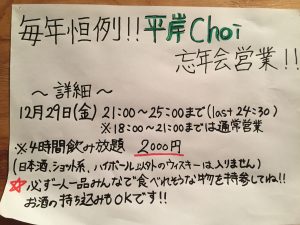 毎年恒例!! 平岸Choi
忘年会営業!!
〜詳細〜
12月29日(金) 21:00〜25:00まで(last 24:30)
※18:00〜21:00までは通常営業
※4時間飲み放題 2000円
(日本酒、ショット系、ハイボール以外のウィスキーは入りません)
☆必ず一人一品みんなで食べれそうな物を持参してね!!
お酒の持ち込みもOKです!!